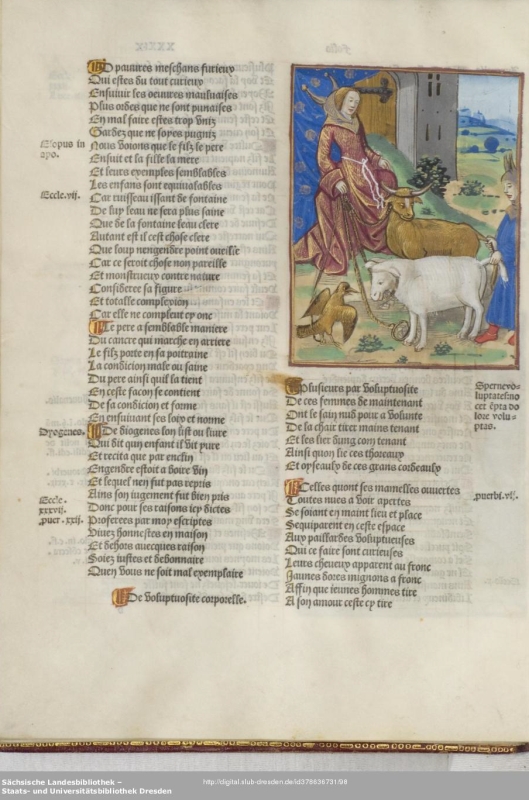 O pauures meschans furieux
Qui estes du tout curieux
Ensuiuir les oeuures mauluaises
Plus ordes que ne sont punaises
En mal faire estes trop vniz
Gardez que ne soyes pugniz
Esopus in apo.
Nous voions que le filz le pere
Ensuit et la fille la mere
Et leurs exemples semblables
Les enfans sont equiualables
Eccle. vij.
Car ruisseau issant de fontaine
De luy leau ne sera plus saine
Que de la fontaine leau clere
Autant est il cest chose clere
Que loup nengendre point oueille
Car ce seroit chose non pareille
Et monstrueux contre nature
Consideree sa figure
Et totalle complexion
Car elle ne compleut cy onc
Le pere a semblable maniere
Du cancre qui marche en arriere
Le filz porte en sa poitraine
La condicion male ou saine
Du pere ainsi quil la tient
En ceste facon se contient
De sa condicion et forme
En ensuiuant ses loix et norme
Dyogenes.
De diogenes lon list ou liure
Qui dit quun enfant il vit yure
Et recita que par enclin
Engendre estoit a boire vin
Et lequel nen fut pas repris
Ains son iugement fut bien pris
Eccle. xxxvij.
Donc pour ses raisons icy dictes
puer. xxij.
Proferees par moy escriptes
Viuez honnestes en maison
Et dehors auecques raison
Soiez iustes et debonnaire
Quen vous ne soit mal exemplaire
De voluptuosite corporelle.
Plusieurs par voluptuosite
De ces femmes de maintenant
Ont le sain nud pour a volunte
De la chair tirer mains tenant
Et les lier dung com tenant
Ainsi quon lie ces thoreaux
Et opseaulx de ces grans cordeaulx
Sperne vo-
luptates no
cet epta do
lore volu-
ptas.
Telles quont ses mamelles ouuertes
puerbi. vij.
Toutes nues a voir apertes
Se soiant en maint lieu et place
Sequiparent en ceste espace
Aux paillardes voluptueuses
Qui ce faire sont curieuses
Leurs cheueux apparent au fronc
Jaunes dores mignons a fronc
Affin que ieunes hommes tire
A son amour ceste cy tire
Sächsische Landesbibliothek –
Staats- und Universitätsbibliothek Dresden
http://digital.slub-dresden.de/id378636731/98